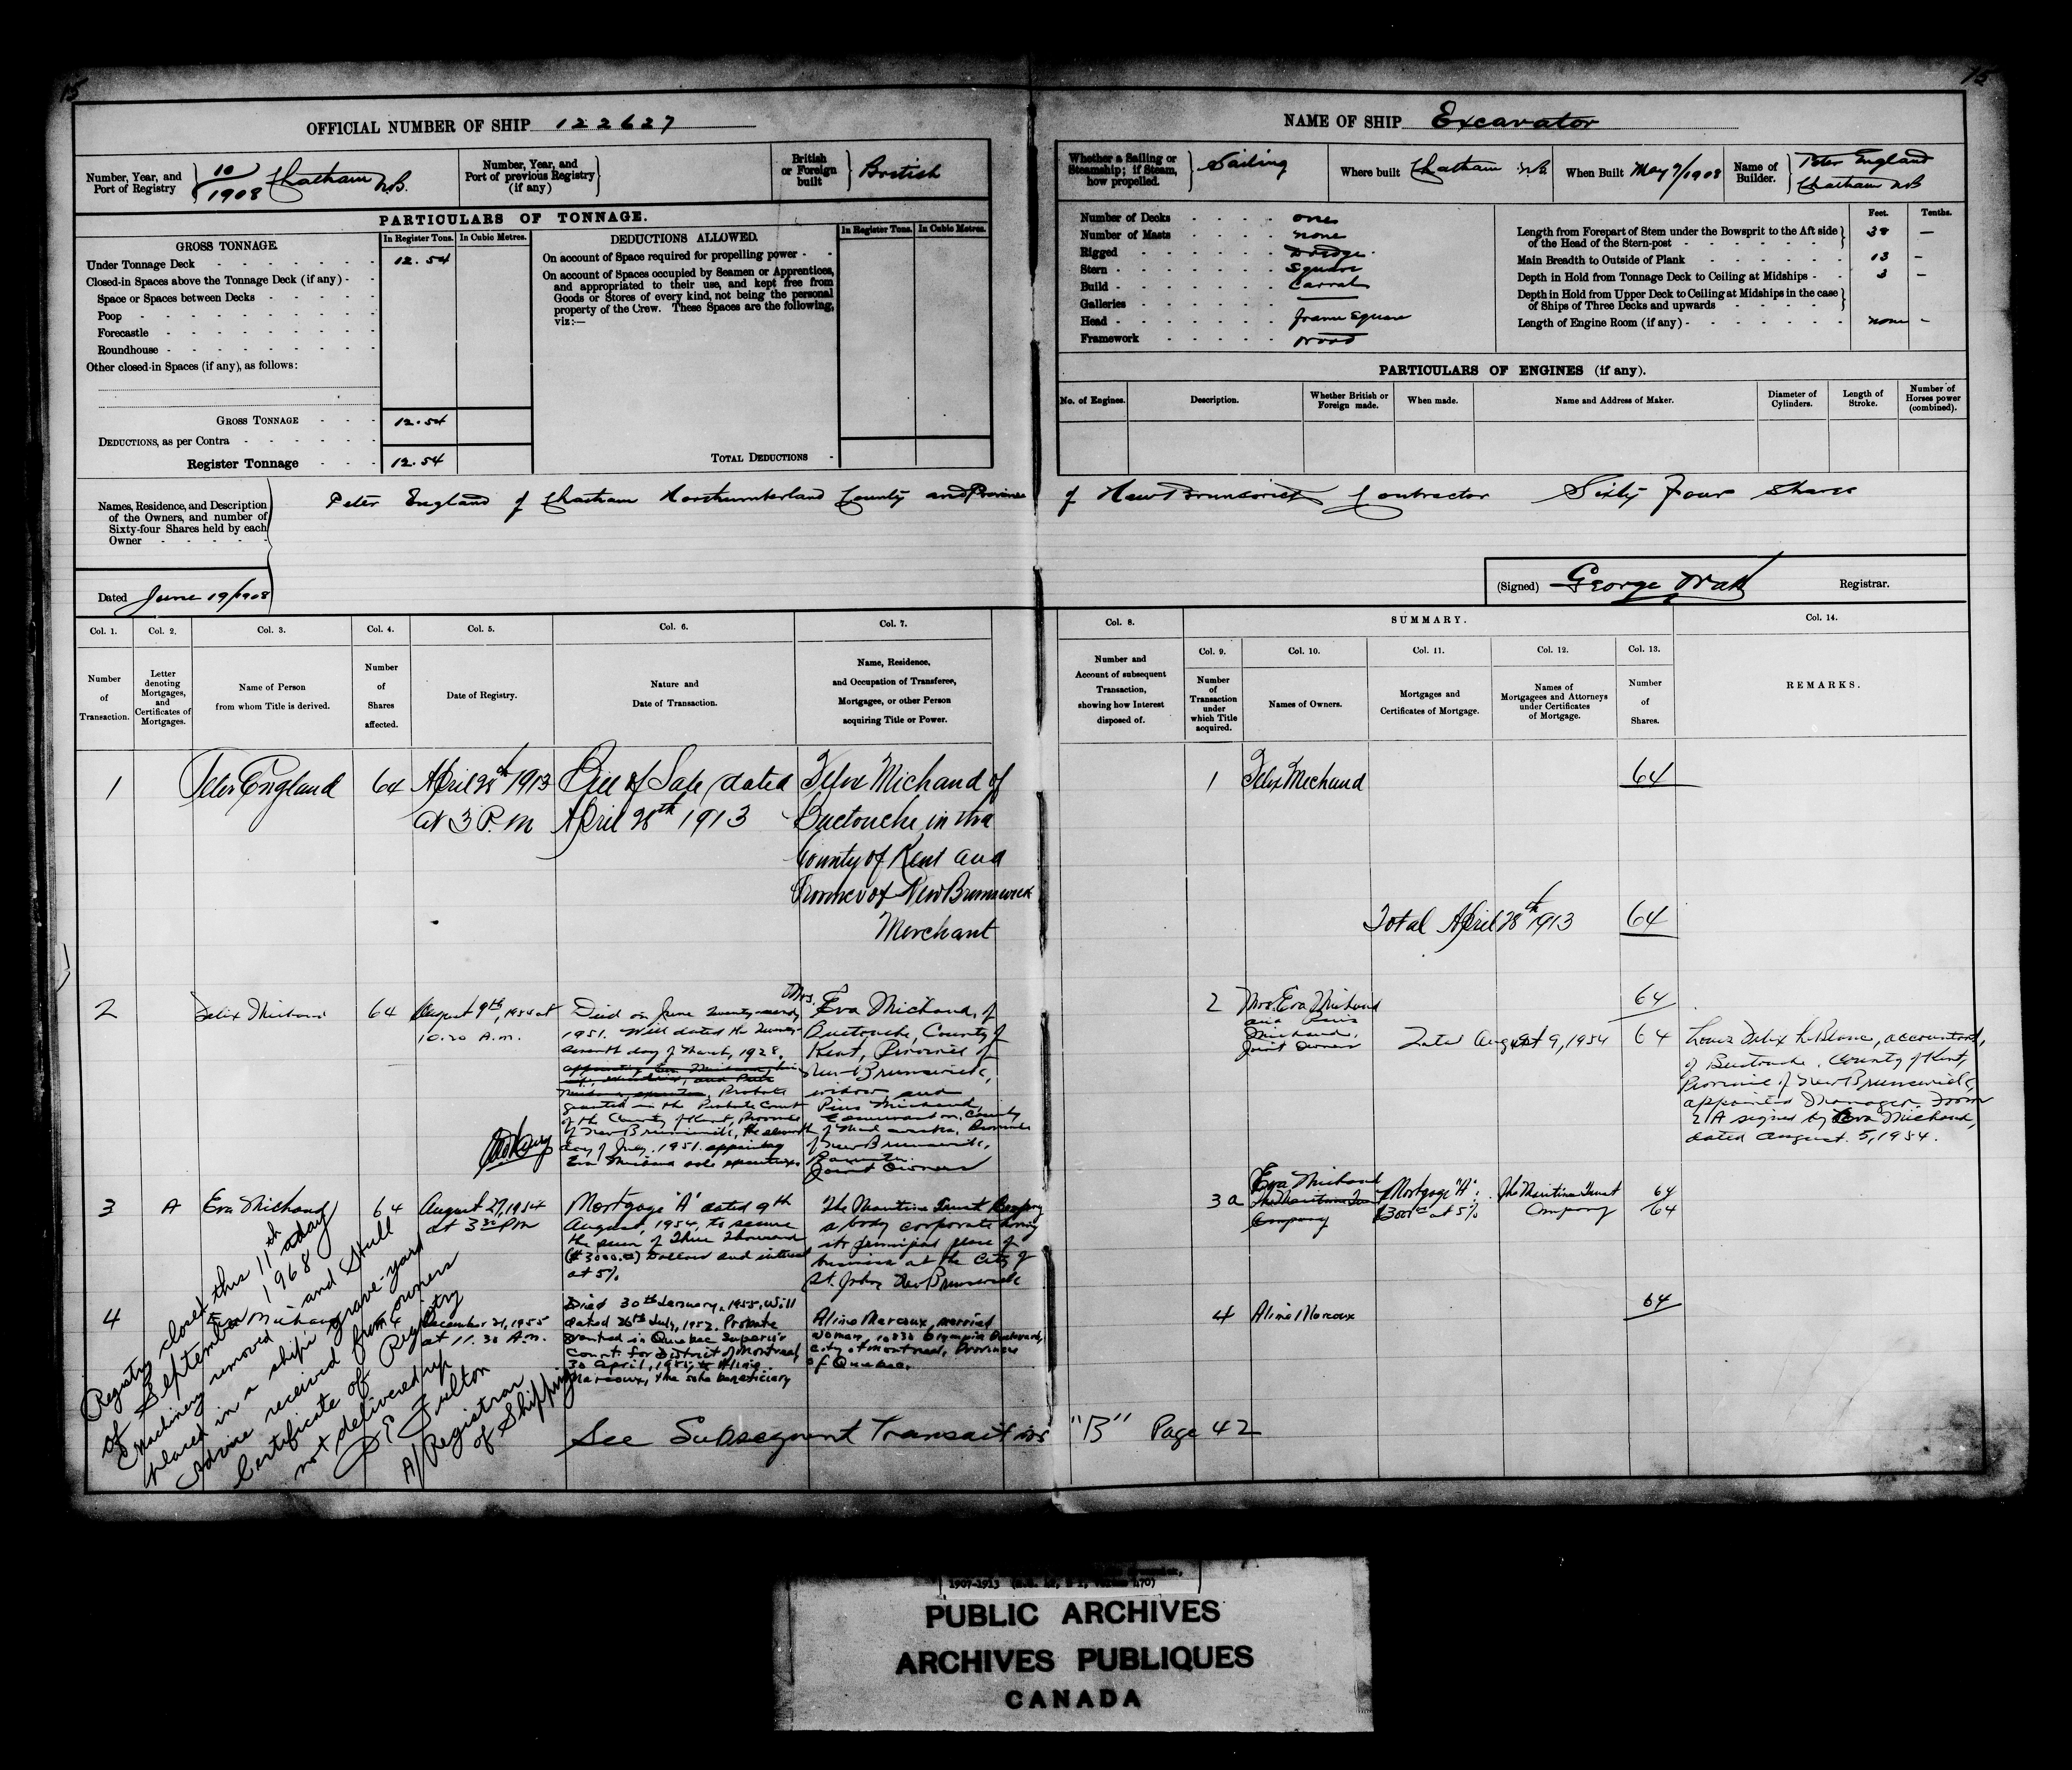 15
15
OFFICIAL NUMBER OF SHIP 122627
NAME OF SHIP Excavator
Number, Year, and Port of Registry
10/1908 Chatham N.B.
Number, Year, and Port of previous Registry (if any)
British or Foreign built
British
Whether a Sailing or Steamship; if Steam, how propelled.
Sailing
Where built Chatham N.B.
When Built May 9/1908
Name of Builder.
Peter England
Chatham NB
PARTICULARS OF TONNAGE.
GROSS TONNAGE.
In Register Tons.
In Cubic Metres.
Under Tonnage Deck 12.54
Closed-in Spaces above the Tonnage Deck (if any)
Space or Spaces between Decks
Poop
Forecastle
Roundhouse
Other closed-in Spaces (if any), as follows:
GROSS TONNAGE 12.54
DEDUCTIONS, as per Contra
Register Tonnage 12.54
DEDUCTIONS ALLOWED.
In Register Tons.
In Cubic Metres.
On account of Space required for propelling power
On account of Spaces occupied by Seamen or Apprentices,
and appropriated to their use, and kept free from
Goods or Stores of every kind, not being the personal
property of the Crew. These Spaces are the following,
viz:—
TOTAL DEDUCTIONS
Number of Decks one
Number of Masts none
Rigged Dredge
Stern Square
Build Carval
Galleries
Head frame square
Framework wood
Feet.
Tenths.
Length from Forepart of Stem under the Bowsprit to the Aft side of the Head of the Stern-post 38 —
Main Breadth to Outside of Plank 13 —
Depth in Hold from Tonnage Deck to Ceiling at Midships 3 —
Depth in Hold from Upper Deck to Ceiling at Midships in the case of Ships of Three Decks and upwards
Length of Engine Room (if any) none —
PARTICULARS OF ENGINES (if any).
No. of Engines.
Description.
Whether British or Foreign made.
When made.
Name and Address of Maker.
Diameter of Cylinders.
Length of Stroke.
Number of Horses power (combined).
Names, Residence, and Description of the Owners, and number of Sixty-four Shares held by each Owner
Peter England of Chatham Northumberland County and Province of New Brunswick Contractor Sixty Four Shares
Dated June 19/1908
(Signed) George Watt Registrar.
Col. 1.
Col. 2.
Col. 3.
Col. 4.
Col. 5.
Col. 6.
Col. 7.
Col. 8.
SUMMARY.
Col. 14.
Col. 9.
Col. 10.
Col. 11.
Col. 12.
Col. 13.
Number of Transaction.
Letter denoting Mortgages, and Certificates of Mortgages.
Name of Person from whom Title is derived.
Number of Shares affected.
Date of Registry.
Nature and Date of Transaction.
Name, Residence, and Occupation of Transferee, Mortgagee, or other Person acquiring Title or Power.
Number and Account of subsequent Transaction, showing how Interest disposed of.
Number of Transaction under which Title acquired.
Names of Owners.
Mortgages and Certificates of Mortgage.
Names of Mortgagees and Attorneys under Certificates of Mortgage.
Number of Shares.
REMARKS.
1
Peter England
64
April 28th 1913
at 3 P.M
Bill of Sale dated
April 28th 1913
Felix Michaud of
Buctouche in the
County of Kent and
Province of New Brunswick
Merchant
1
Felix Michaud
64
Total April 28th 1913 64
2
Felix Michaud
64
August 9th, 1954 at
10.20 A.M.
Died on June twenty-
1951. Will dated the twenty-
seventh day of March, 1928.
Probate
granted in the Probate Court
of the County of Kent, Province
of New Brunswick, the eleventh
day of July, 1951 appointing
Eva Michaud sole executrix.
Mrs. Eva Michaud, of
Buctouche, County of
Kent, Province of
New Brunswick,
widow and
Pius Michaud,
Edmundston, County
of Madawaska, Province
of New Brunswick,
Barrister.
Joint Owners
2
Mrs. Eva Michaud
and Pius
Michaud,
Joint Owners
64
Total August 9, 1954 64
Louis Felix LeBlanc, accountant,
of Buctouche, County of Kent,
Province of New Brunswick,
appointed Manager. Form
signed by Eva Michaud,
dated August 5, 1954.
3
A
Eva Michaud
64
August 27, 1954
at 3 30 PM
Mortgage "A" dated 9th
August, 1954, to secure
the sum of Three Thousand
($3000.00) Dollars and interest
at 5%
The Maritime Trust Company
a body corporate having
its principal place of
business at the City of
St. John, New Brunswick
3 a
Eva Michaud
The Maritime Trust
Company
Mortgage "A":
$3000.00 at 5%
The Maritime Trust
Company
64
64
4
Eva Michaud
64
December 21, 1955
at 11.30 A.M.
Died 30th January, 1955, Will
dated 26th July, 1952. Probate
granted in Quebec Superior
Court for District of Montreal,
30 April, 1955, to Aline
Marcoux, the sole beneficiary
Aline Marcoux, married
woman, 10830 Olympia Boulevard,
City of Montreal, Province
of Quebec.
4
Aline Marcoux
64
See Subsequent Transactions "B" Page 42
Registry closed this 11th day
of September 1968
Machinery removed and Hull
placed in a ships grave-yard
Advice received from owners
Certificate of Registry
not delivered up
D E Fulton
A/Registrar
of Shipping
PUBLIC ARCHIVES
ARCHIVES PUBLIQUES
CANADA